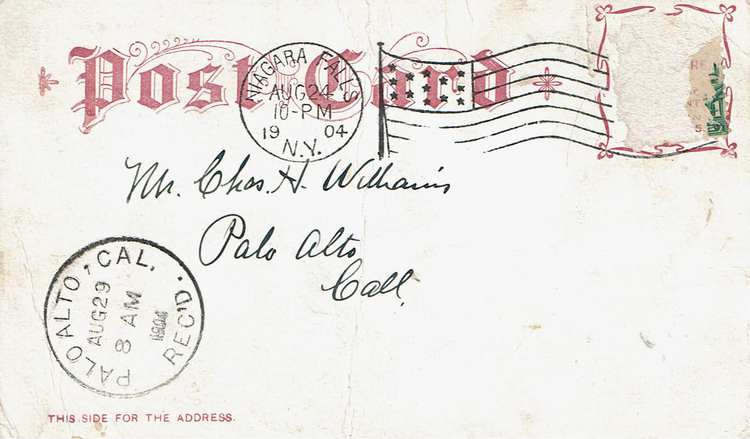 Post Card
NIAGARA FALLS
AUG 24
10-PM
19 04
N.Y.
Mr. Chas. H. Williams
Palo Alto
Call.
PALO ALTO, CAL.
AUG 29
8 AM
1904
REC'D.
THIS SIDE FOR THE ADDRESS.